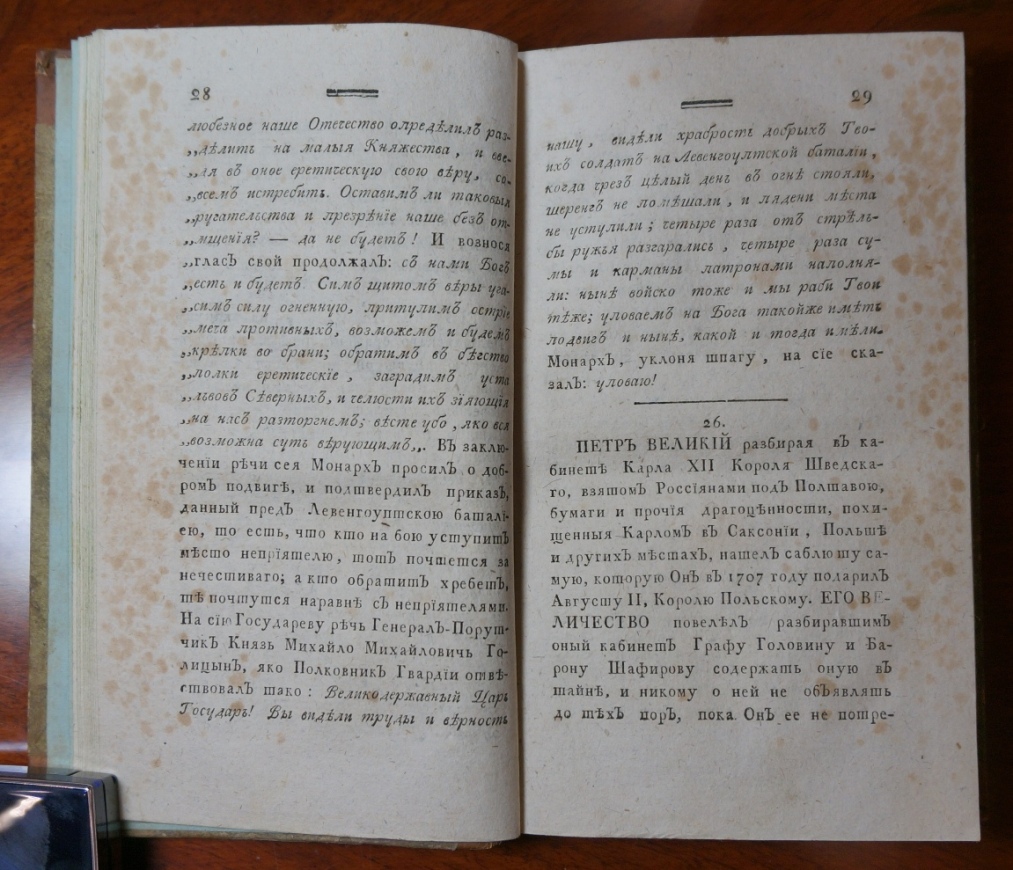 28
любезное наше Отечество опредѣлилЪ раз-
„дѣлить на малыя Княжества, и вве-
„дя вЪ оное еретическую свою вѣру, со-
„всемЪ истребить. ОставимЪ ли таковыя
„ругательства и презрѣніе наше безЪ от-
„мщенія? — да не будетЪ! И вознося
„гласЪ свой продолжалЪ: сЪ нами БогЪ
„есть и будетЪ. СимЪ щитомЪ вѣры уга-
„симЪ силу огненную, притупимЪ остріе
„меча противныхЪ, возможемЪ и будемЪ
„крѣпки во брани; обратимЪ вЪ бѣгство
„полки еретическіе, заградимЪ уста
„львовЪ СѣверныхЪ, и челюсти ихЪ зіяющія
„на насЪ разторгнемЪ; вѣсте убо, яко вся
„возможна суть вѣрующимЪ„. ВЪ заклю-
ченіи рѣчи сея МонархЪ просилЪ о доб-
ромЪ подвигѣ, и подтвердилЪ приказЪ,
данный предЪ Левенгоуптскою баталі-
ею, то есть, что кто на бою уступитЪ
мѣсто непріятелю, тотЪ почтется за
нечестиваго; а кто обратитЪ хребетЪ,
тѣ почтутся наравнѣ сЪ непріятелями.
На сію Государеву рѣчь ГенералЪ-Поруш-
чикЪ Князь Михайло МихайловичЪ Го-
лицынЪ, яко ПолковникЪ Гвардіи отвѣ-
тствовалЪ тако: Великодержавный Царь
Государь! Вы видѣли труды и вѣрность
29
нашу, видѣли храбрость добрыхЪ Тво-
ихЪ солдатЪ на Левенгоултской баталіи,
когда чрезЪ цѣлый день вЪ огнѣ стояли,
шеренгЪ не помѣшали, и пядени мѣста
не уступили; четыре раза отЪ стрѣль-
бы ружья разгарались, четыре раза су-
мы и карманы патронами наполня-
ли: нынѣ войско тоже и мы раби Твои
тѣже; уповаемЪ на Бога такойже имѣть
подвигЪ и нынѣ, какой и тогда имѣли.
МонархЪ, уклоня шпагу, на сіе ска-
залЪ: уповаю!
26.
ПЕТРЪ ВЕЛИКІЙ разбирая вЪ ка-
бинетѣ Карла XII Короля Шведска-
го, взятомЪ Россіянами подЪ Полтавою,
бумаги и прочія драгоцѣнности, похи-
щенныя КарломЪ вЪ Саксоніи, Польшѣ
и другихЪ мѣстахЪ, нашелЪ саблю ту са-
мую, которую ОнЪ вЪ 1707 году подарилЪ
Августу II, Королю Польскому. ЕГО ВЕ-
ЛИЧЕСТВО повелѣлЪ разбиравшимЪ
оный кабинетЪ Графу Головину и Ба-
рону Шафирову содержать оную вЪ
тайнѣ, и никому о ней не обЪявлять
до тѣхЪ порЪ, пока ОнЪ ее не потре-